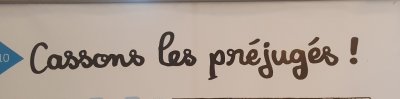 10 Cassons les préjugés !